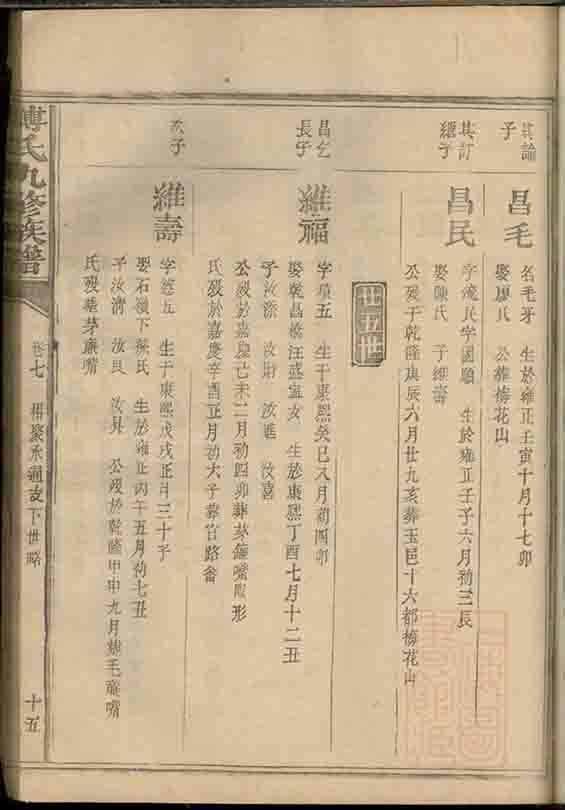 其諭
子
昌毛
名毛牙 生於雍正壬寅十月十七卯
娶廖氏 公葬梅花山
其訂
繼子
昌民
字 民字國順 生於雍正壬子六月初三辰
娶陳氏 子維壽
公歿于乾隆庚辰六月廿九亥葬玉邑十六都梅花山
世五世
昌乞
長子
維福
字 五 生于康熙癸巳八月初四卯
娶乾昌橋汪盛寰女 生於康熙丁酉七月十二丑
子汝 汝財 汝進 汝喜
公歿於嘉慶己未二月初四卯葬茅 嘴 形
氏歿於嘉慶辛酉正月初六子葬官路畬
次子
維壽
字 五 生于康熙戊戌正月三十子
娶石嶺下蔡氏 生於雍正丙午五月初七丑
子汝清 汝良 汝昇 公歿於乾隆甲申九月 毛 嘴
氏歿 茅 嘴
傅氏九修族譜
卷七
下世略
十五